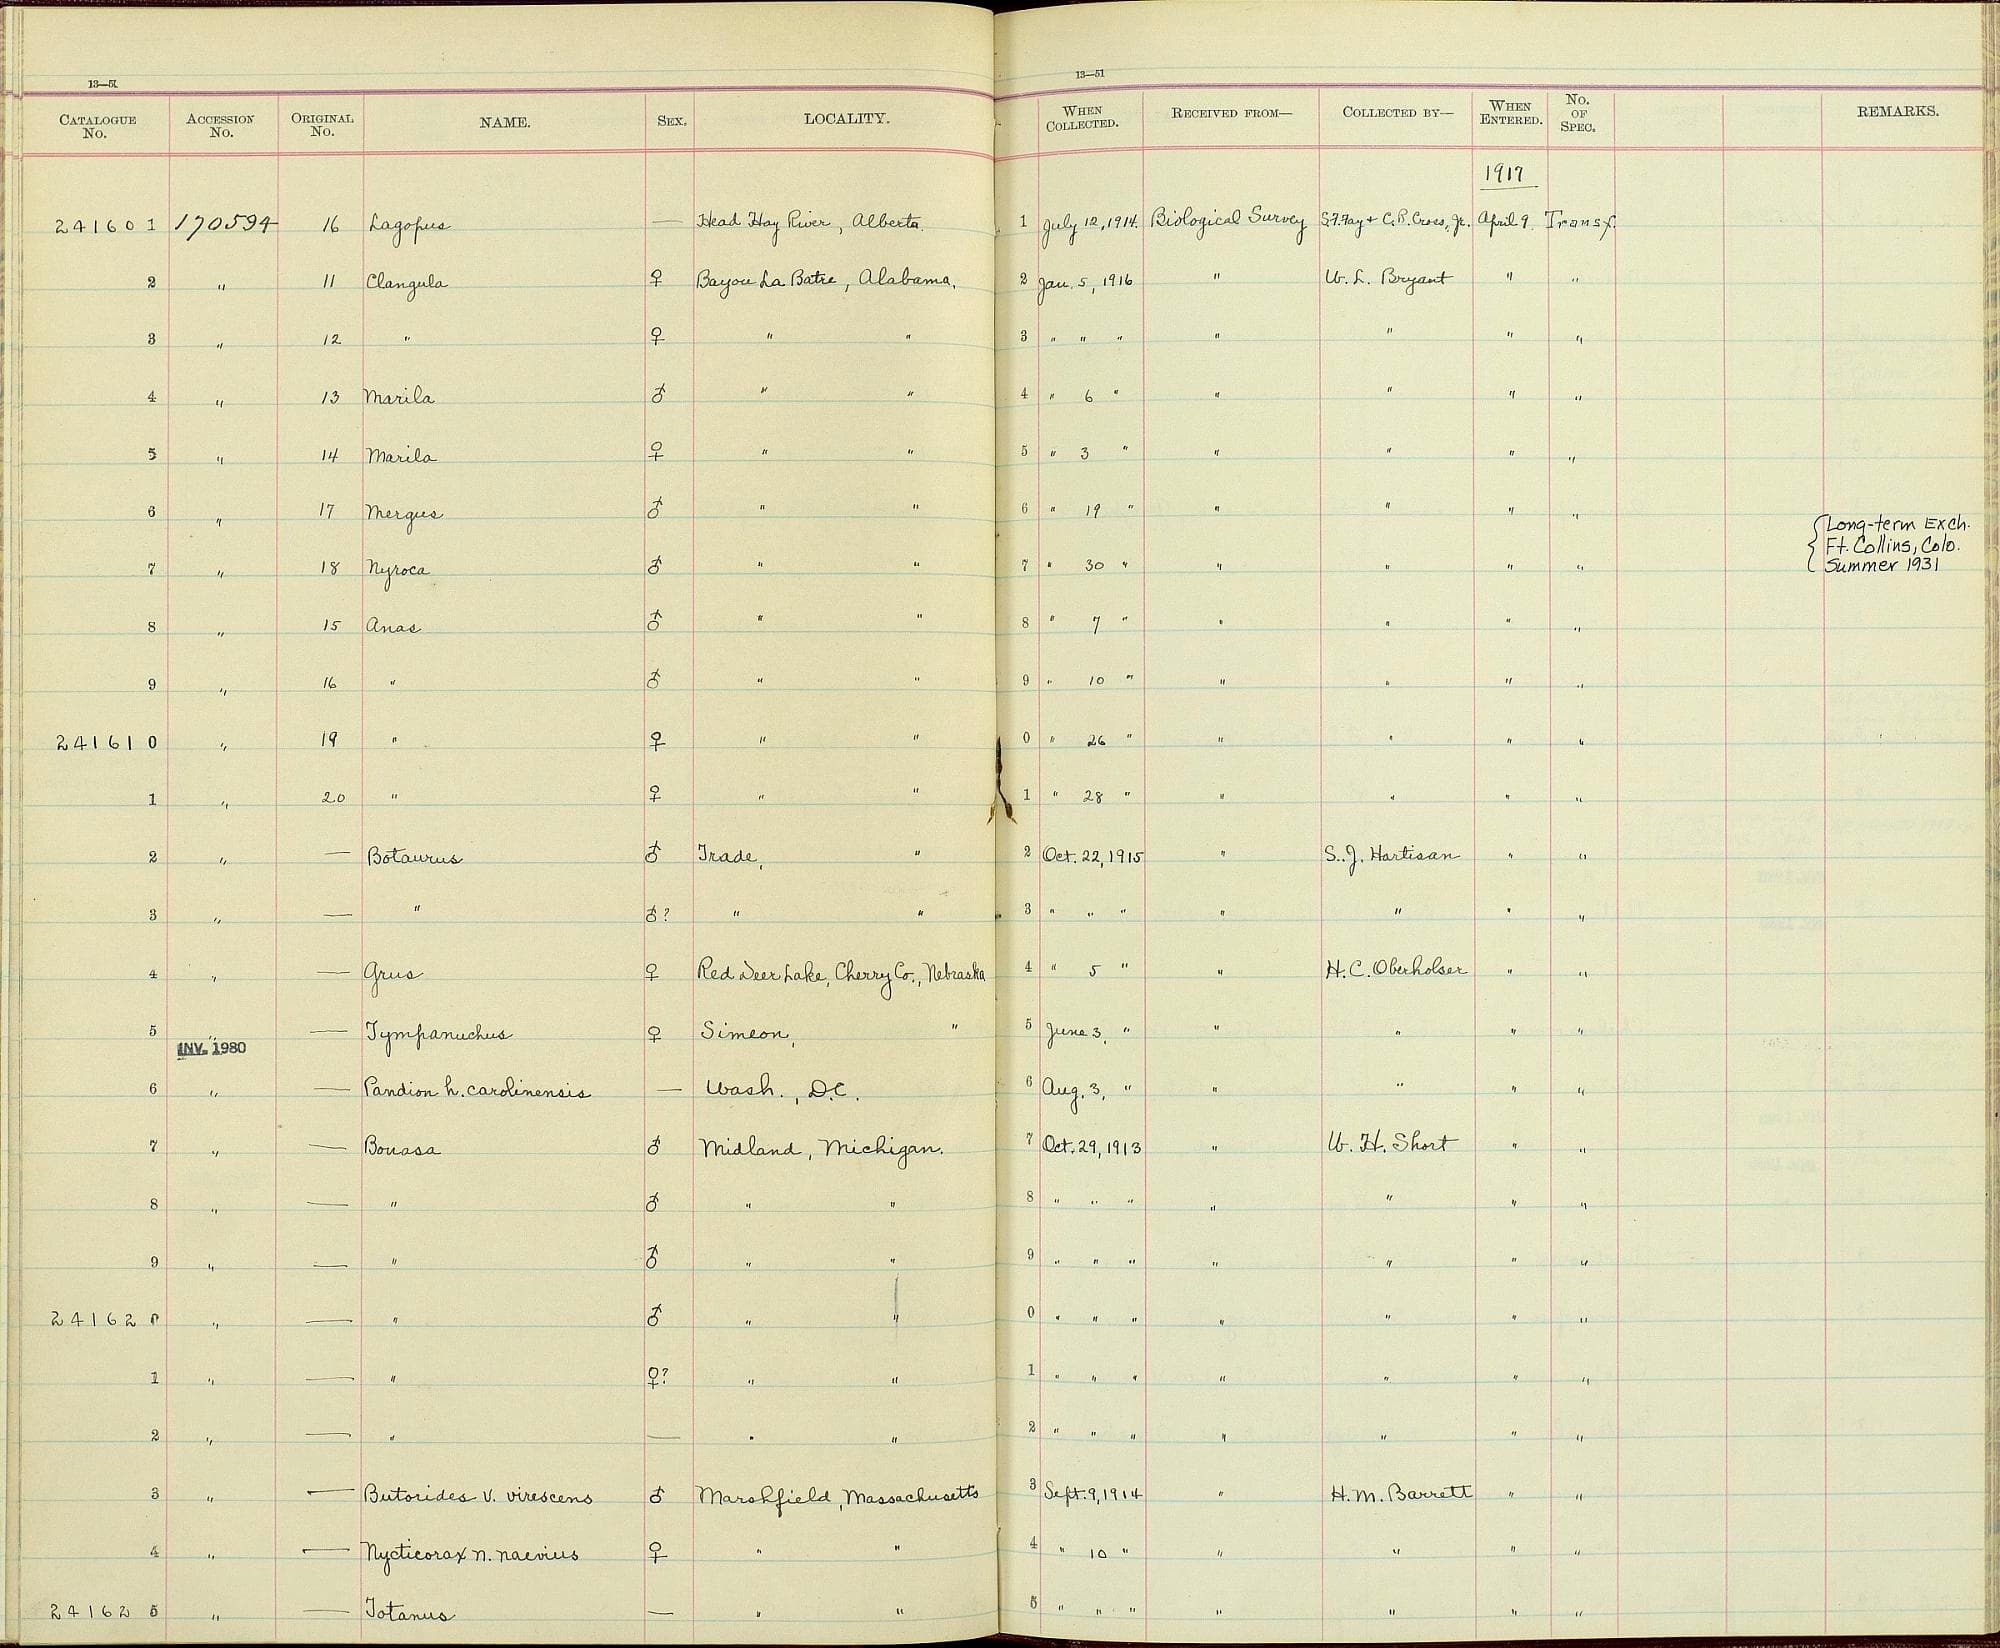 13—51
13—51
CATALOGUE No. ACCESSION No. ORIGINAL No. NAME. SEX. LOCALITY. WHEN COLLECTED. RECEIVED FROM— COLLECTED BY— WHEN ENTERED. No. OF SPEC. REMARKS.
1917
241601 170594 16 Lagopus — Head Hay River, Alberta. 1 July 12, 1914. Biological Survey S.F. Fay & C.R. Cross, Jr. April 9. Transf.
2 " 11 Clangula ♀ Bayou La Batre, Alabama. 2 Jan. 5, 1916 " W. L. Bryant " "
3 " 12 " ♀ " " 3 " " " " " " "
4 " 13 Marila ♂ " " 4 " 6 " " " " "
5 " 14 Marila ♀ " " 5 " 3 " " " " "
6 " 17 Mergus ♂ " " 6 " 19 " " " " "
Long-term Exch.
Ft. Collins, Colo.
Summer 1931
7 " 18 Nyroca ♂ " " 7 " 30 " " " " "
8 " 15 Anas ♂ " " 8 " 7 " " " " "
9 " 16 " ♂ " " 9 " 10 " " " " "
241610 " 19 " ♀ " " 0 " 26 " " " " "
1 " 20 " ♀ " " 1 " 28 " " " " "
2 " — Botaurus ♂ Trade, " 2 Oct. 22, 1915 " S. J. Hartisan " "
3 " — " ♂? " " 3 " " " " " " "
4 " — Grus ♀ Red Deer Lake, Cherry Co., Nebraska 4 " 5 " " H. C. Oberholser " "
5 " — Tympanuchus ♀ Simeon, " 5 June 3, " " " " "
INV. 1980
6 " — Pandion h. carolinensis — Wash., D.C. 6 Aug. 3, " " " " "
7 " — Bonasa ♂ Midland, Michigan. 7 Oct. 29, 1913 " W. H. Short " "
8 " — " ♂ " " 8 " " " " " " "
9 " — " ♂ " " 9 " " " " " " "
241620 " — " ♂ " " 0 " " " " " " "
1 " — " ♀? " " 1 " " " " " " "
2 " — " — " " 2 " " " " " " "
3 " — Butorides v. virescens ♂ Marshfield, Massachusetts 3 Sept. 9, 1914 " H. M. Barrett " "
4 " — Nycticorax n. naevius ♀ " " 4 " 10 " " " " "
241625 " — Totanus — " " 5 " " " " " " "